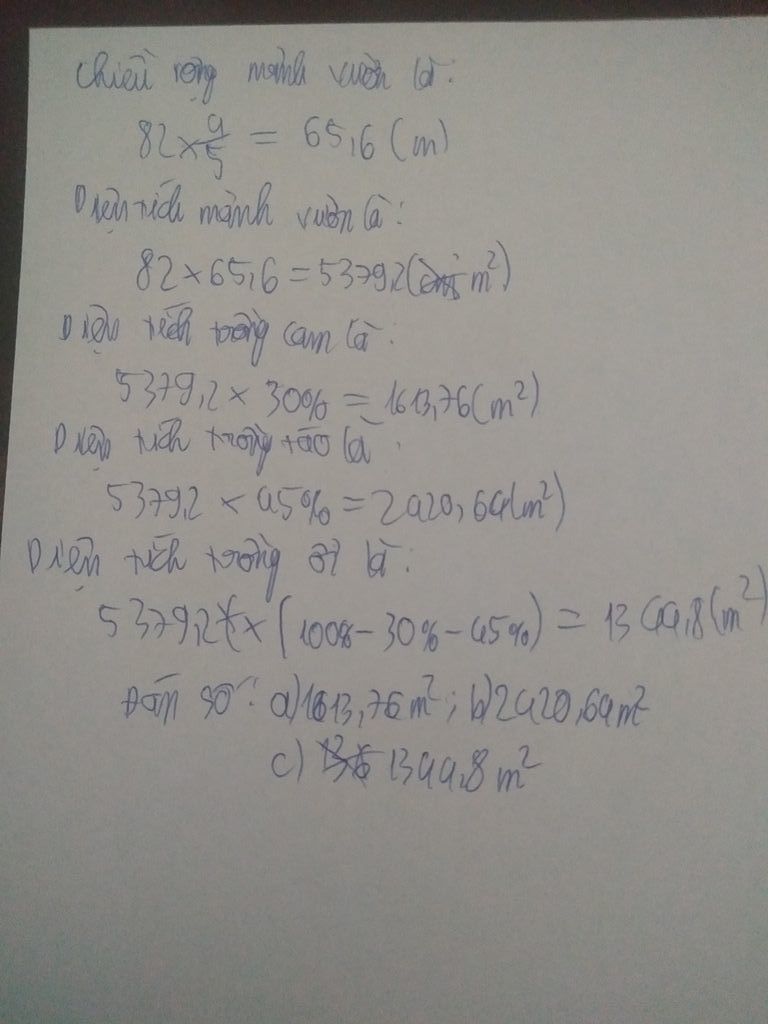 Chiều rộng mảnh vườn là:
82 × 4/5 = 65,6 (m)
Diện tích mảnh vườn là:
82 × 65,6 = 5379,2 (m²)
Diện tích trồng cam là:
5379,2 × 30% = 1613,76 (m²)
Diện tích trồng táo là:
5379,2 × 45% = 2420,64 (m²)
Diện tích trồng ổi là:
5379,2 × (100% - 30% - 45%) = 1344,8 (m²)
Đáp số: a) 1613,76 m²; b) 2420,64 m²
c) 1344,8 m²